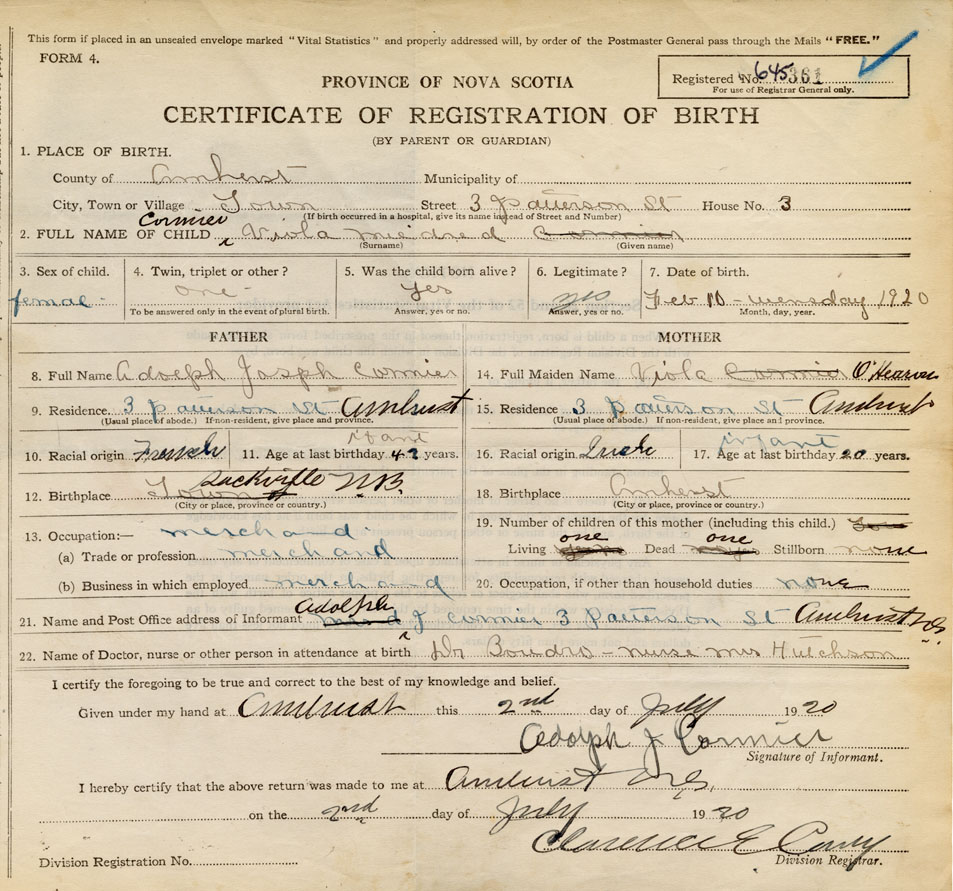 This form if placed in an unsealed envelope marked "Vital Statistics" and properly addressed will, by order of the Postmaster General pass through the Mails "FREE."
FORM 4.
Registered No. 645361
For use of Registrar General only.
PROVINCE OF NOVA SCOTIA
CERTIFICATE OF REGISTRATION OF BIRTH
(BY PARENT OR GUARDIAN)
1. PLACE OF BIRTH.
County of Amherst Municipality of
City, Town or Village Town Street 3 Patterson St House No. 3
(If birth occurred in a hospital, give its name instead of Street and Number)
Cormier
2. FULL NAME OF CHILD Viola Miedred Cormier
(Surname) (Given name)
3. Sex of child. 4. Twin, triplet or other? 5. Was the child born alive? 6. Legitimate? 7. Date of birth.
femae one yes yes Feb 10 - wensday 1920
To be answered only in the event of plural birth. Answer, yes or no. Answer, yes or no. Month, day, year.
FATHER MOTHER
8. Full Name Adolph Josph Cormier 14. Full Maiden Name Viola Cormier O'Hearon
9. Residence. 3 Patterson St Amhurst 15. Residence 3 Patterson St Amhurst
(Usual place of abode.) If non-resident, give place and province. (Usual place of abode.) If non-resident, give place and province.
10. Racial origin French 11. Age at last birthday 42 years. 16. Racial origin Irish 17. Age at last birthday 20 years.
Sackville N.B.
12. Birthplace Town 18. Birthplace Amherst
(City or place, province or country.) (City or place, province or country.)
13. Occupation:— merchand 19. Number of children of this mother (including this child.)
(a) Trade or profession merchand Living one Dead one Stillborn none
(b) Business in which employed merchand 20. Occupation, if other than household duties none
Adolph
21. Name and Post Office address of Informant J Cormier 3 Patterson St Amhurst NS
22. Name of Doctor, nurse or other person in attendance at birth Dr Boudro - nurse Mrs Hutchson
I certify the foregoing to be true and correct to the best of my knowledge and belief.
Given under my hand at Amhurst this 2nd day of July 1920
Adolph J Cormier
Signature of Informant.
I hereby certify that the above return was made to me at Amhurst N.S.
on the 2nd day of July 1920
Clarence E
Division Registrar.
Division Registration No.